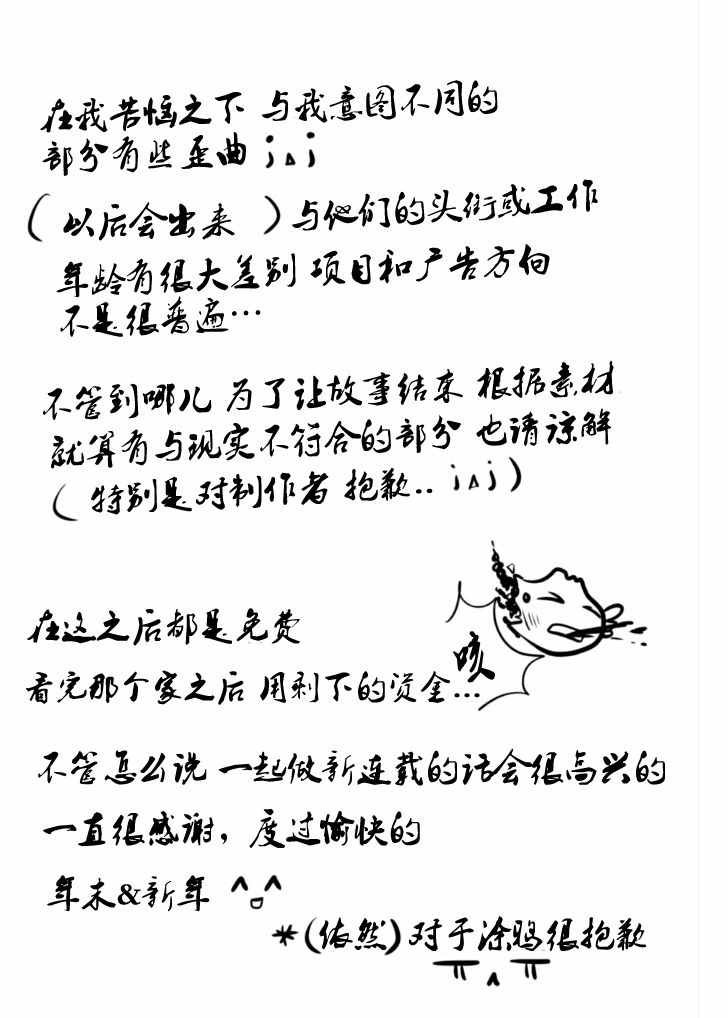 在我苦恼之下 与我意图不同的
部分有些歪曲 ;△;
(以后会出来 )与他们的头衔或工作
年龄有很大差别 项目和广告方向
不是很普遍…
不管到哪儿 为了让故事结束 根据素材
就算有与现实不符合的部分 也请谅解
(特别是对制作者 抱歉.. ;△;)
在这之后都是免费
咳
看完那个家之后 用剩下的资金...
不管怎么说 一起做新连载的话会很高兴的
一直很感谢，度过愉快的
年末&新年 ^ㅁ^
*(依然)对于涂鸦很抱歉
ㅠ^ㅠ